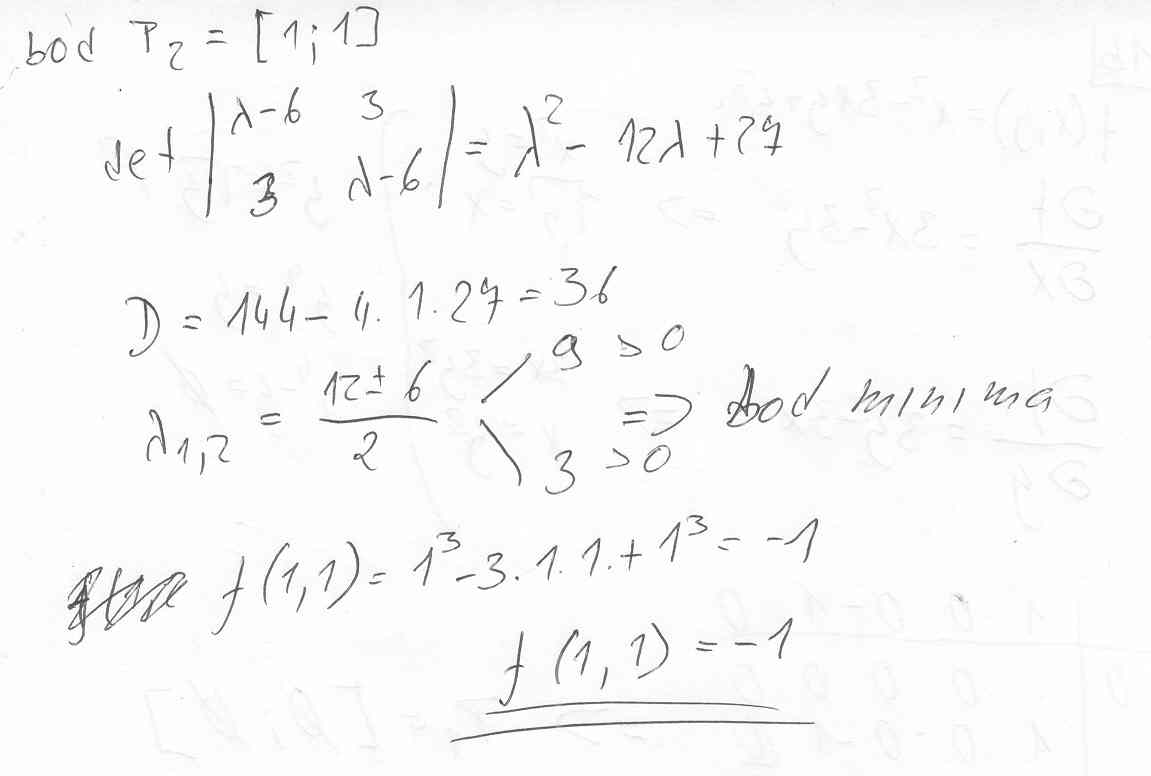 bod P₂ = [1;1]
det | λ-6 3 |
| 3 λ-6 | = λ² - 12λ + 27
D = 144 - 4. 1. 27 = 36
λ₁,₂ = (12 ± 6) / 2
9 > 0
3 > 0
=> bod minima
f(1,1) = 1³ - 3.1.1. + 1³ = -1
f(1,1) = -1